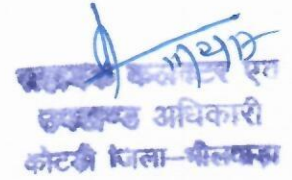 सहायक कलेक्टर एवं
उपखण्ड अधिकारी
कोटडी जिला-भीलवाडा